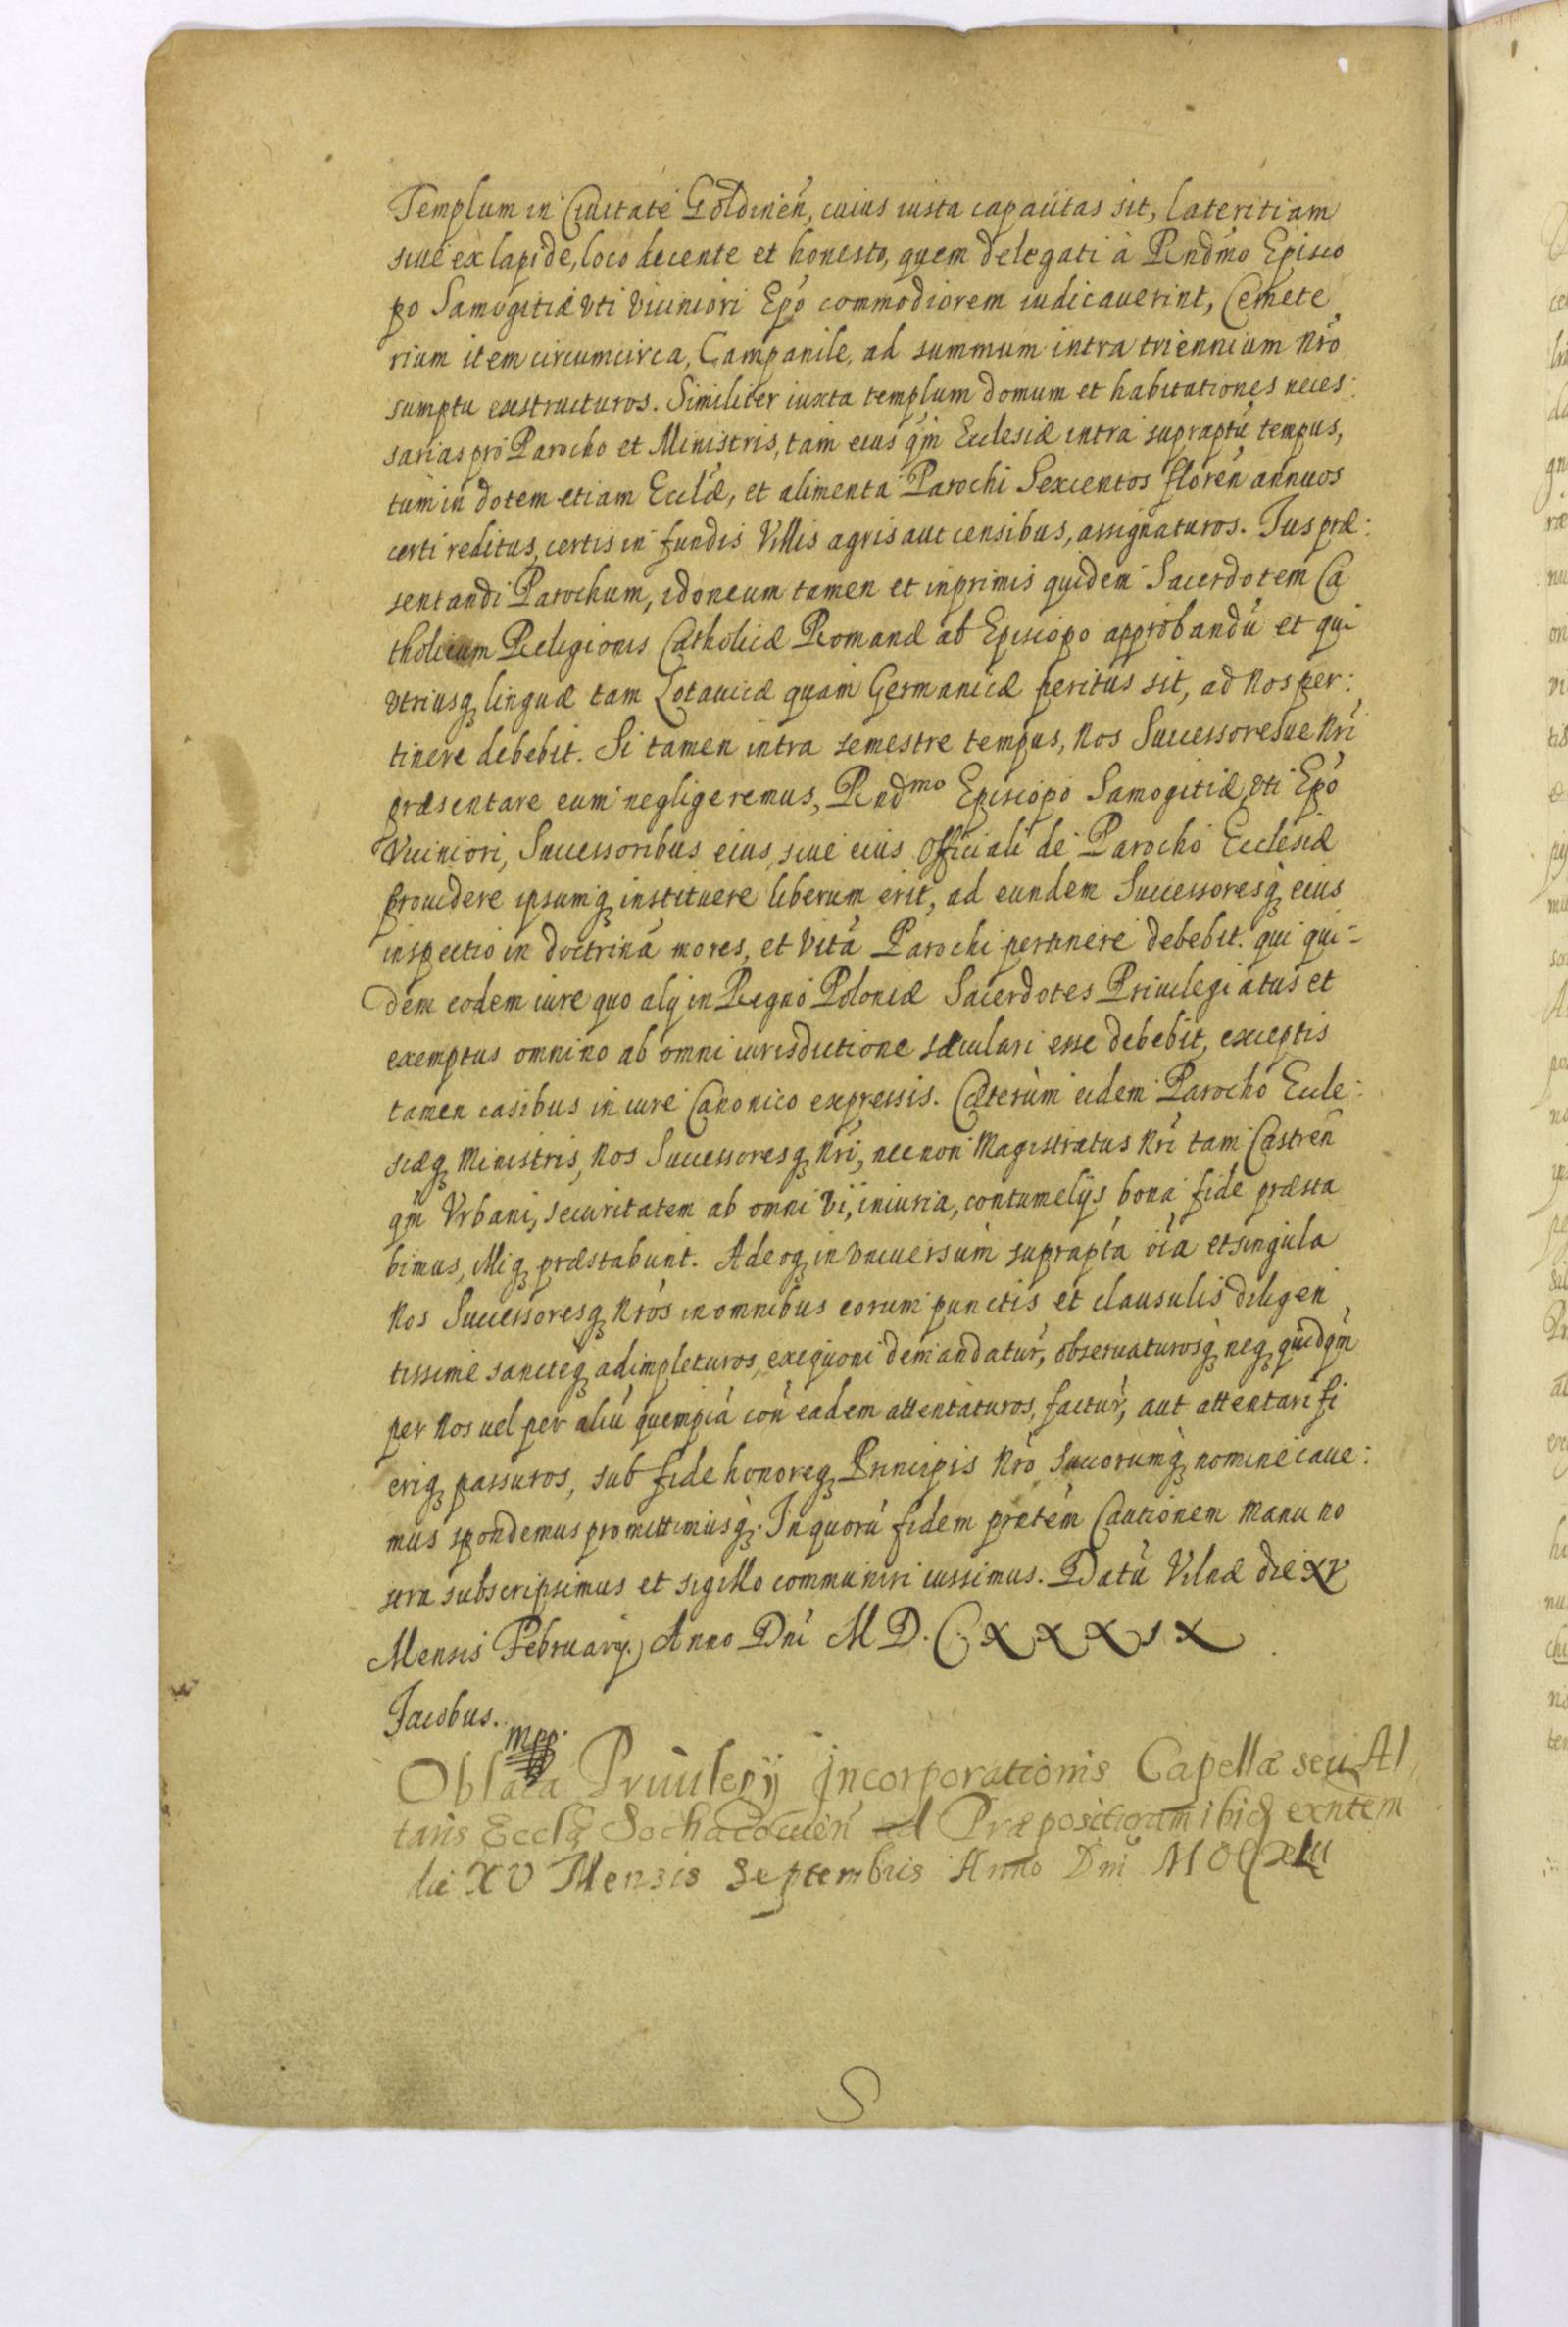 Templum in Ciuitate Goldinen̄, cuius iusta capacitas sit, lateritiam
siue ex lapide, loco decente et honesto, quem delegati à Rndmo Episco
po Samogitiæ vti viciniori Epõ commodiorem iudicauerint, Cemete
rium item circumcirca, Campanile, ad summum intra triennium nr̃o
sumptu exstructuros. Similiter iuxta templum domum et habitationes neces:
sarias pro Parocho et Ministris, tam eius qm̃ Ecclesiæ intra supraptũ tempus,
tum in dotem etiam Eccl̃æ, et alimenta Parochi Sexcentos florẽn annuos
certi reditus, certis in fundis Villis agris aut censibus, assignaturos. Ius præ:
sentandi Parochum, idoneum tamen et inprimis quidem Sacerdotem Ca
tholicum Religionis Catholicæ Romanæ ab Episcopo approbandũ et qui
vtriusq linguæ tam Lotauicæ quam Germanicæ peritus sit, ad Nos per:
tinere debebit. Si tamen intra semestre tempus, Nos Successoresue Nr̃i
præsentare eum negligeremus, Rndmo Episcopo Samogitiæ, vti Epõ
Viciniori, Successoribus eius, siue eius Officiali de Parocho Ecclesiæ
prouidere ipsumq instituere liberum erit, ad eundem Successoresq eius
inspectio in doctrinã mores, et vitã Parochi pertinere debebit. qui qui-
dem eodem iure quo alij in Regno Poloniæ Sacerdotes Priuilegiatus et
exemptus omnino ab omni iurisdictione sæculari esse debebit, exceptis
tamen casibus in iure Canonico expressis. Cæterùm eidem Parocho Eccle:
siæq Ministris, Nos Successoresq Nr̃i, necnon Magistratus Nr̃i tam Castren̄
qm̃ Vrbani, securitatem ab omni vi, iniuria, contumelijs bona fide præsta
bimus, illiq præstabunt. Adeoq in vniuersùm suprapta õia et singula
Nos Successoresq Nr̃os in omnibus eorum punctis et clausulis diligen
tissimè sanctèq adimpleturos, exeqũoni demandatur̃, obseruaturosq neq quidqm̃
per Nos uel per aliũ quempiã con̄ eadem attentaturos, factur̃, aut attentari fi
eriq passuros, sub fide honoreq Principis Nr̃o Sucorumq nomine caue:
mus spondemus promittimusq. In quorũ fidem pr̃ntem Cautionem manu no
stra subscripsimus et sigillo communiri iussimus. Datũ Vilnæ die XV
Mensis Februarij. Anno Dni M D. C. X X X I X
Jacobus.
mpp.
Oblata Priuilegij Incorporationis Capellæ seu Al
taris Eccl̃æ Sochacouien̄ ad Præposituram ibiđ exñtem
die XV Mensis Septembris Anno Dni